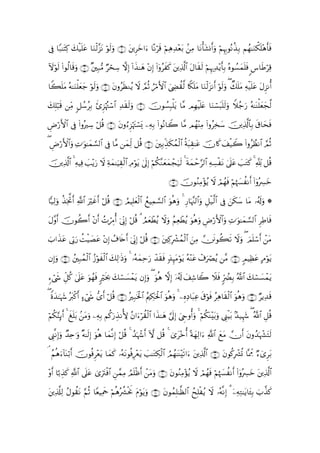 فَأَهْلَكْنَٰهُم بِذُنُوبِهِمْ وَأَنشَأْنَا مِنۢ بَعْدِهِمْ قَرْنًا ءَاخَرِينَ ۝ وَلَوْ نَزَّلْنَا عَلَيْكَ كِتَٰبًا فِى
قِرْطَاسٍ فَلَمَسُوهُ بِأَيْدِيهِمْ لَقَالَ ٱلَّذِينَ كَفَرُوٓا۟ إِنْ هَٰذَآ إِلَّا سِحْرٌ مُّبِينٌ ۝ وَقَالُوا۟ لَوْلَآ
أُنزِلَ عَلَيْهِ مَلَكٌ ۖ وَلَوْ أَنزَلْنَا مَلَكًا لَّقُضِىَ ٱلْأَمْرُ ثُمَّ لَا يُنظَرُونَ ۝ وَلَوْ جَعَلْنَٰهُ مَلَكًا
لَّجَعَلْنَٰهُ رَجُلًا وَلَلَبَسْنَا عَلَيْهِم مَّا يَلْبِسُونَ ۝ وَلَقَدِ ٱسْتُهْزِئَ بِرُسُلٍ مِّن قَبْلِكَ
فَحَاقَ بِٱلَّذِينَ سَخِرُوا۟ مِنْهُم مَّا كَانُوا۟ بِهِۦ يَسْتَهْزِءُونَ ۝ قُلْ سِيرُوا۟ فِى ٱلْأَرْضِ
ثُمَّ ٱنظُرُوا۟ كَيْفَ كَانَ عَٰقِبَةُ ٱلْمُكَذِّبِينَ ۝ قُل لِّمَن مَّا فِى ٱلسَّمَٰوَٰتِ وَٱلْأَرْضِ ۖ
قُل لِّلَّهِ ۚ كَتَبَ عَلَىٰ نَفْسِهِ ٱلرَّحْمَةَ ۚ لَيَجْمَعَنَّكُمْ إِلَىٰ يَوْمِ ٱلْقِيَٰمَةِ لَا رَيْبَ فِيهِ ۚ ٱلَّذِينَ
خَسِرُوٓا۟ أَنفُسَهُمْ فَهُمْ لَا يُؤْمِنُونَ ۝ ۞ وَلَهُۥ مَا سَكَنَ فِى ٱلَّيْلِ وَٱلنَّهَارِ ۚ
وَهُوَ ٱلسَّمِيعُ ٱلْعَلِيمُ ۝ قُلْ أَغَيْرَ ٱللَّهِ أَتَّخِذُ وَلِيًّا فَاطِرِ ٱلسَّمَٰوَٰتِ وَٱلْأَرْضِ وَهُوَ
يُطْعِمُ وَلَا يُطْعَمُ ۗ قُلْ إِنِّىٓ أُمِرْتُ أَنْ أَكُونَ أَوَّلَ مَنْ أَسْلَمَ ۖ وَلَا تَكُونَنَّ مِنَ
ٱلْمُشْرِكِينَ ۝ قُلْ إِنِّىٓ أَخَافُ إِنْ عَصَيْتُ رَبِّى عَذَابَ يَوْمٍ عَظِيمٍ ۝ مَّن يُصْرَفْ
عَنْهُ يَوْمَئِذٍ فَقَدْ رَحِمَهُۥ ۚ وَذَٰلِكَ ٱلْفَوْزُ ٱلْمُبِينُ ۝ وَإِن يَمْسَسْكَ ٱللَّهُ بِضُرٍّ فَلَا
كَاشِفَ لَهُۥٓ إِلَّا هُوَ ۖ وَإِن يَمْسَسْكَ بِخَيْرٍ فَهُوَ عَلَىٰ كُلِّ شَىْءٍ قَدِيرٌ ۝ وَهُوَ
ٱلْقَاهِرُ فَوْقَ عِبَادِهِۦ ۚ وَهُوَ ٱلْحَكِيمُ ٱلْخَبِيرُ ۝ قُلْ أَىُّ شَىْءٍ أَكْبَرُ شَهَٰدَةً ۖ قُلِ ٱللَّهُ ۖ
شَهِيدٌۢ بَيْنِى وَبَيْنَكُمْ ۚ وَأُوحِىَ إِلَىَّ هَٰذَا ٱلْقُرْءَانُ لِأُنذِرَكُم بِهِۦ وَمَنۢ بَلَغَ ۚ أَئِنَّكُمْ
لَتَشْهَدُونَ أَنَّ مَعَ ٱللَّهِ ءَالِهَةً أُخْرَىٰ ۚ قُل لَّآ أَشْهَدُ ۚ قُلْ إِنَّمَا هُوَ إِلَٰهٌ وَٰحِدٌ وَإِنَّنِى
بَرِىٓءٌ مِّمَّا تُشْرِكُونَ ۝ ٱلَّذِينَ ءَاتَيْنَٰهُمُ ٱلْكِتَٰبَ يَعْرِفُونَهُۥ كَمَا يَعْرِفُونَ أَبْنَآءَهُمُ ۘ
ٱلَّذِينَ خَسِرُوٓا۟ أَنفُسَهُمْ فَهُمْ لَا يُؤْمِنُونَ ۝ وَمَنْ أَظْلَمُ مِمَّنِ ٱفْتَرَىٰ عَلَى ٱللَّهِ كَذِبًا أَوْ
كَذَّبَ بِـَٔايَٰتِهِۦٓ ۗ إِنَّهُۥ لَا يُفْلِحُ ٱلظَّٰلِمُونَ ۝ وَيَوْمَ نَحْشُرُهُمْ جَمِيعًا ثُمَّ نَقُولُ لِلَّذِينَ